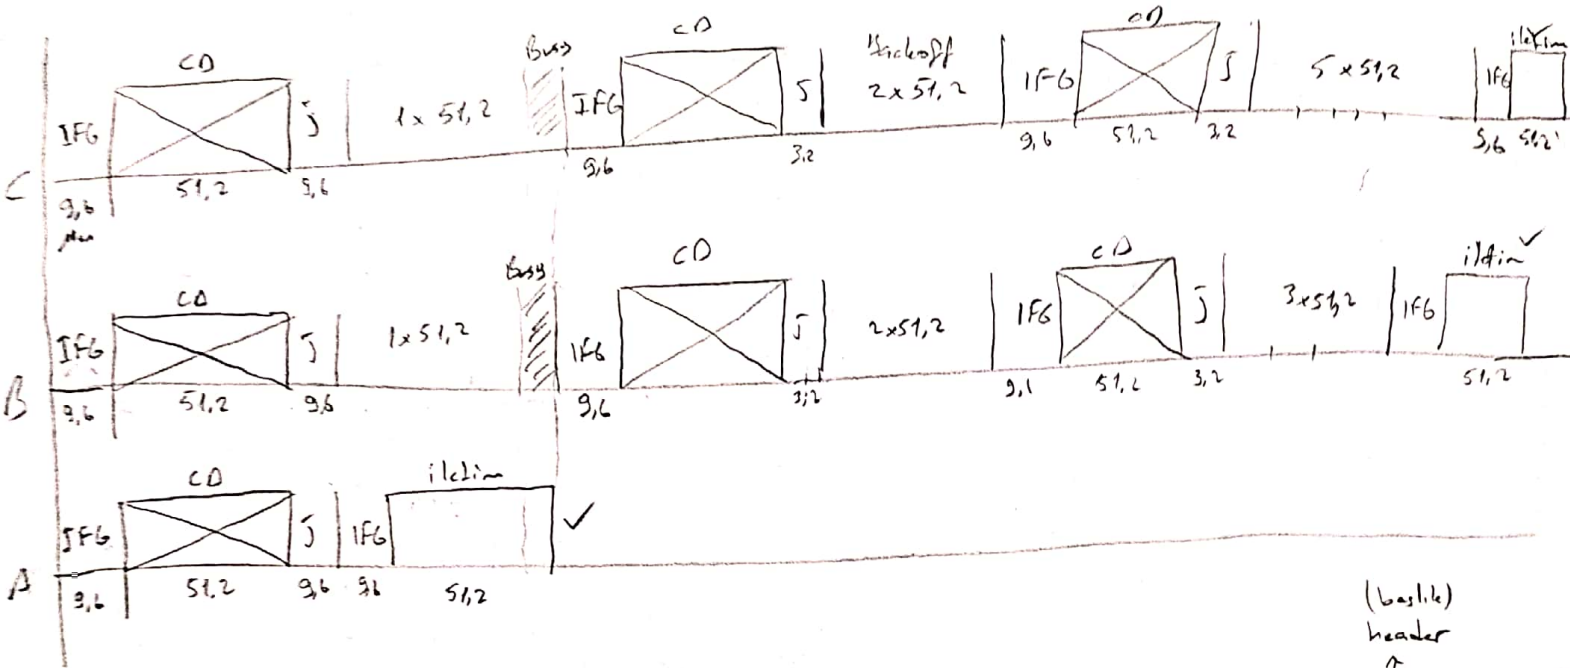 CD
IFG
J
1 x 51,2
Busy
IFG
CD
J
Backoff
2 x 51,2
IFG
CD
J
5 x 51,2
IFG
iletim
C
9,6
51,2
9,6
9,6
3,2
9,6
51,2
3,2
9,6
51,2
CD
IFG
J
1 x 51,2
Busy
IFG
CD
J
2x51,2
IFG
CD
J
3x51,2
IFG
iletim ✓
B
9,6
51,2
9,6
9,6
3,2
9,6
51,2
3,2
51,2
CD
IFG
J
IFG
iletim
✓
A
9,6
51,2
9,6
9,6
51,2
(başlık)
header